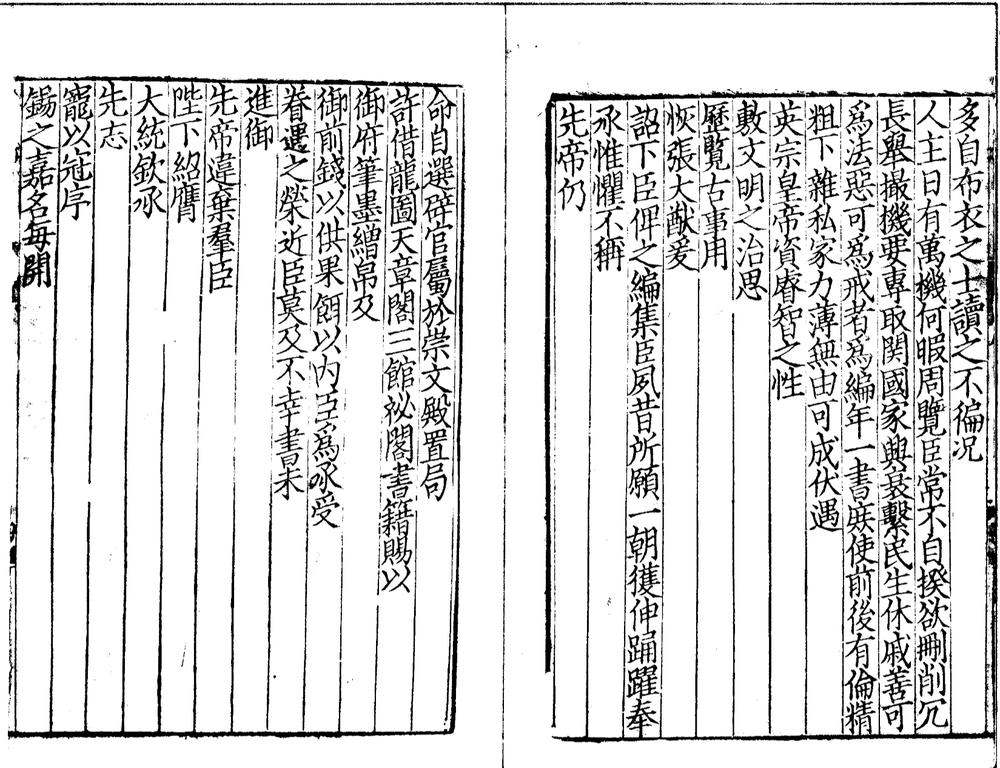 多自布衣之士讀之不徧况
人主日有萬機何暇周覽臣常不自揆欲刪削冗
長舉撮機要專取関國家興衰繫民生休戚善可
爲法惡可爲戒者爲編年一書庻使前後有倫精
粗不雜私家力薄無由可成伏遇
英宗皇帝資睿智之性
敷文明之治思
歷覽古事用
恢張大猷爰
詔下臣俾之編集臣夙昔所願一朝獲伸踊躍奉
承惟懼不稱
先帝仍
命自選辟官屬於崇文殿置局
許借龍圖天章閣三館祕閣書籍賜以
御府筆墨繒帛及
御前錢以供果餌以内臣爲承受
眷遇之榮近臣莫及不幸書未
進御
先帝違棄羣臣
陛下紹膺
大統欽承
先志
寵以冠序
錫之嘉名每開